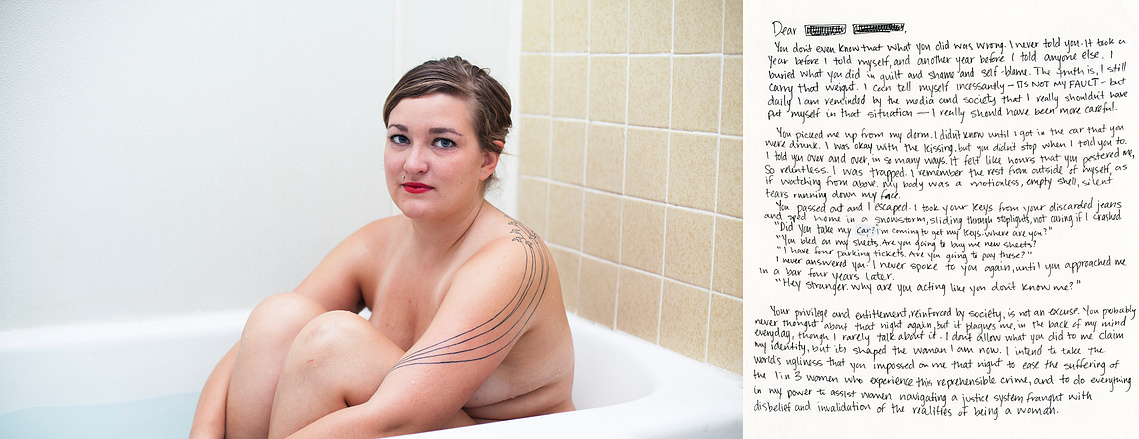 Dear
You don't even know that what you did was wrong. I never told you. It took a
year before I told myself, and another year before I told anyone else. I
buried what you did in guilt and shame and self-blame. The truth is, I still
carry that weight. I can tell myself incessantly - ITS NOT MY FAULT - but
daily I am reminded by the media and society that I really shouldn't have
put myself in that situation — I really should have been more careful.
You picked me up from my dorm. I didn't know until I got in the car that you
were drunk. I was okay with the kissing, but you didn't stop when I told you to.
I told you over and over, in so many ways. It felt like hours that you pestered me,
so relentless. I was trapped. I remember the rest from outside of myself, as
if watching from above. My body was a motionless, empty shell, silent
tears running down my face.
You passed out and I escaped. I took your keys from your discarded jeans
and sped home in a snowstorm, sliding through stoplights, not caring if I crashed
"Did you take my car? i'm coming to get my keys. where are you?"
"You bled on my sheets. Are you going to buy me new sheets?
"I have four parking tickets. Are you going to pay these?"
I never answered you. I never spoke to you again, until you approached me
in a bar four years later.
"Hey stranger. Why are you acting like you don't know me?"
Your privilege and entitlement, reinforced by society, is not an excuse. You probably
never thought about that night again, but it plagues me, in the back of my mind
everyday, though I rarely talk about it. I don't allow what you did to me claim
my identity, but its shaped the woman I am now. I intend to take the
world's ugliness that you impossed on me that night to ease the suffering of
the 1 in 3 women who experience this reprehensible crime, and to do everything
in my power to assist women navigating a justice system fraught with
disbelief and invalidation of the realities of being a woman.